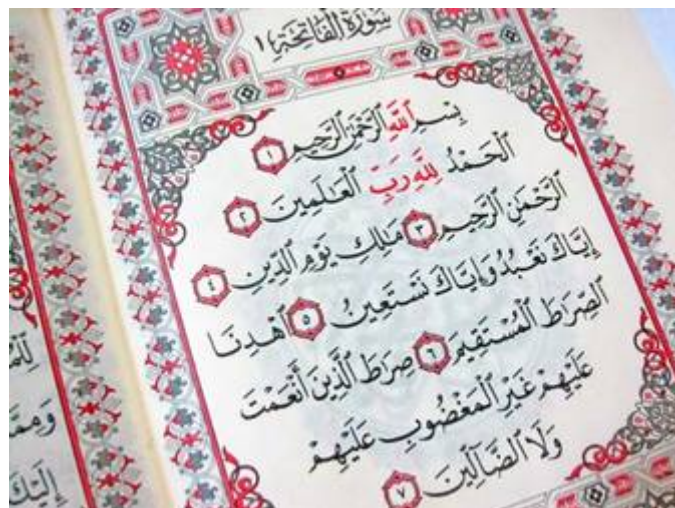 سُورَةُ ٱلْفَاتِحَةِ ١
بِسْمِ ٱللَّهِ ٱلرَّحْمَٰنِ ٱلرَّحِيمِ ١
ٱلْحَمْدُ لِلَّهِ رَبِّ ٱلْعَٰلَمِينَ ٢
ٱلرَّحْمَٰنِ ٱلرَّحِيمِ ٣ مَٰلِكِ يَوْمِ ٱلدِّينِ ٤
إِيَّاكَ نَعْبُدُ وَإِيَّاكَ نَسْتَعِينُ ٥ ٱهْدِنَا
ٱلصِّرَٰطَ ٱلْمُسْتَقِيمَ ٦ صِرَٰطَ ٱلَّذِينَ أَنْعَمْتَ
عَلَيْهِمْ غَيْرِ ٱلْمَغْضُوبِ عَلَيْهِمْ
وَلَا ٱلضَّآلِّينَ ٧
إِلَيْكَ